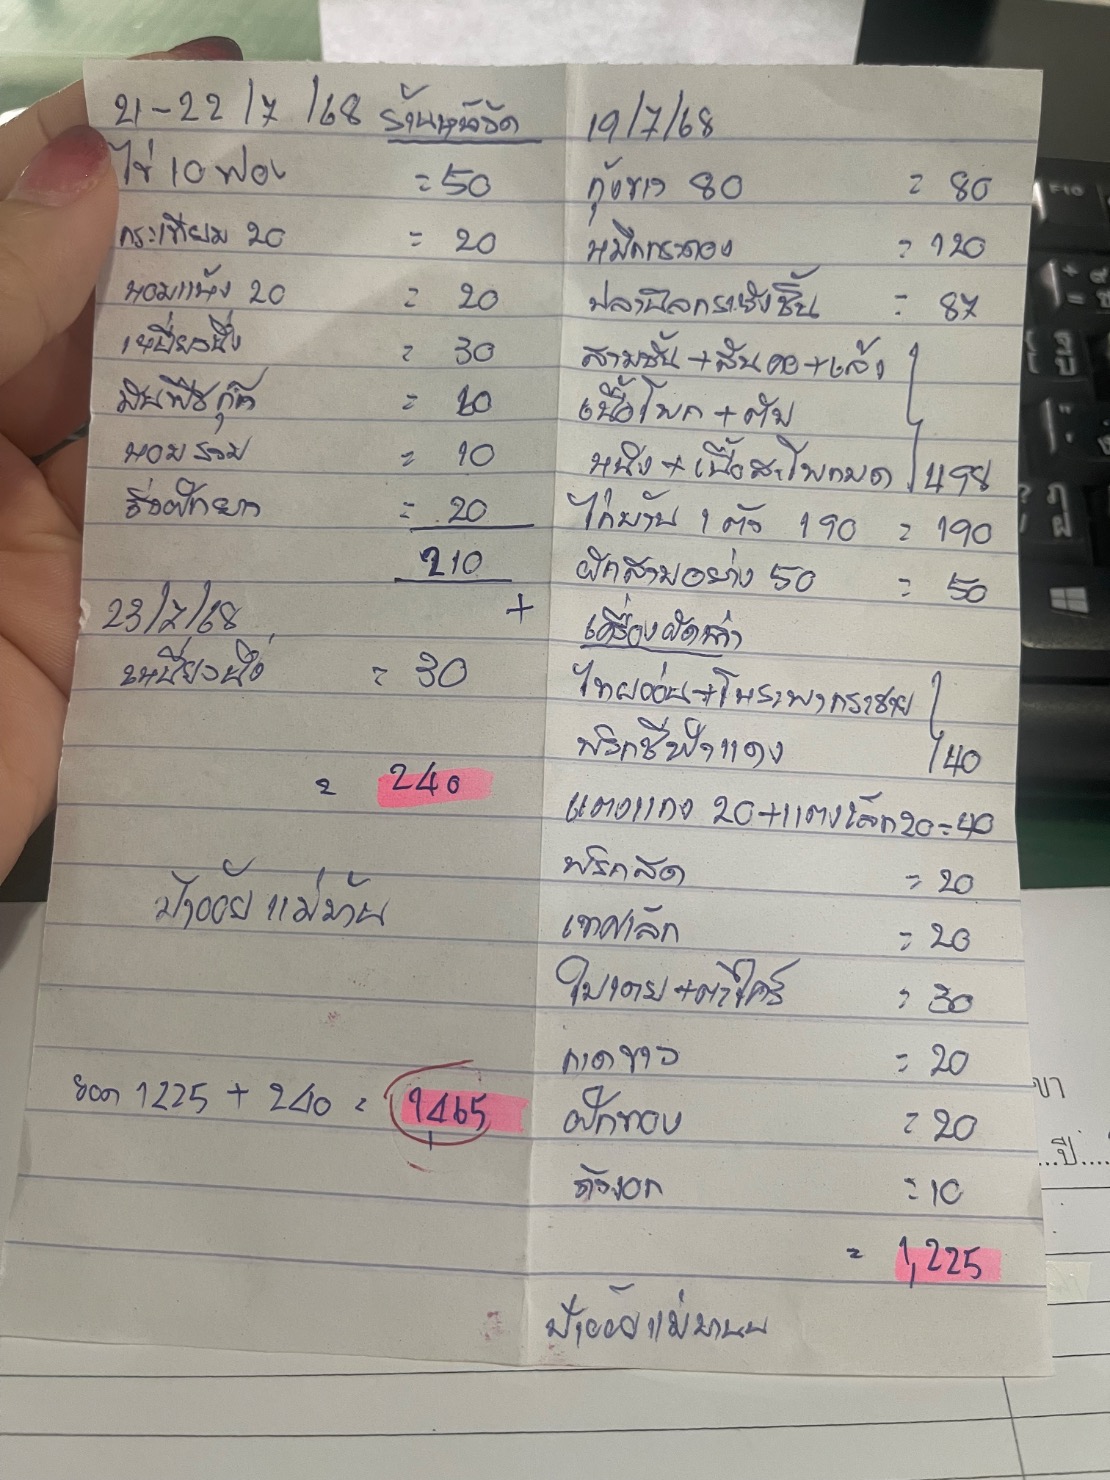 21-22/7/68 ร้านหน้าวัด
ไข่ 10 ฟอง = 50
กระเทียม 20 = 20
หอมแห้ง 20 = 20
เหนียวนึ่ง = 30
= 10
หอมรวม = 10
ถั่วฝักยาว = 20
210
+
23/7/68
เหนียวนึ่ง = 30
= 240
ป้าออ้ย แม่บ้าน
ยอด 1225 + 240 = 1465
19/7/68
กุ้งขาว 80 = 80
หมึกกระดอง = 120
ปลานิลกระชังชิ้น = 87
สามชั้น+สันคอ+เส้ง
เนื้อโพก+ตับ
หนัง+เนื้อสะโพกบด 498
ไก่บ้าน 1 ตัว 190 = 190
ผักสามอย่าง 50 = 50
เครื่องผัดฉ่า
ไทยอ่อน+โหระพากระชาย
พริกชี้ฟ้าแดง 40
แตงแกง 20+แตงเล็ก20=40
พริกสด = 20
เทศเล็ก = 20
ใบเตย+ตะไคร้ = 30
กาดขาว = 20
ฟักทอง = 20
ถั่วงอก = 10
= 1,225
ป้าออ้ย แม่บ้าน
F10
ขา
...ปี....